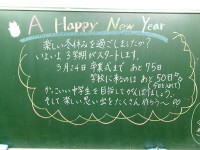 A Happy New Year
楽しい冬休みを過ごしましたか?
いよいよ3学期がスタートします。
3月24日卒業式まで あと75日
学校に来るのは あと50日
かっこいい中学生を目指してがんばりましょう。
そして楽しい思い出をたくさん作ろう〜